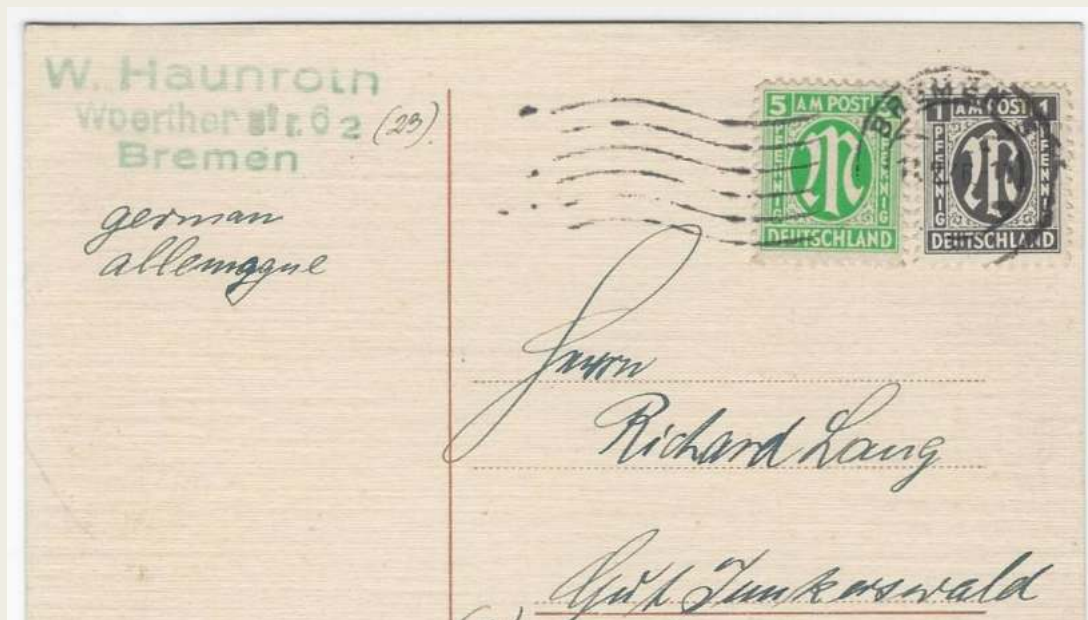 W. Haunroth
Woerther str. 62 (23).
Bremen
german
allemagne
5 AM POST
PFENNIG PFENNIG
DEUTSCHLAND
1 AM POST 1
PFENNIG PFENNIG
DEUTSCHLAND
BREMEN
Herrn
Richard Lang
Gut Junkerswald